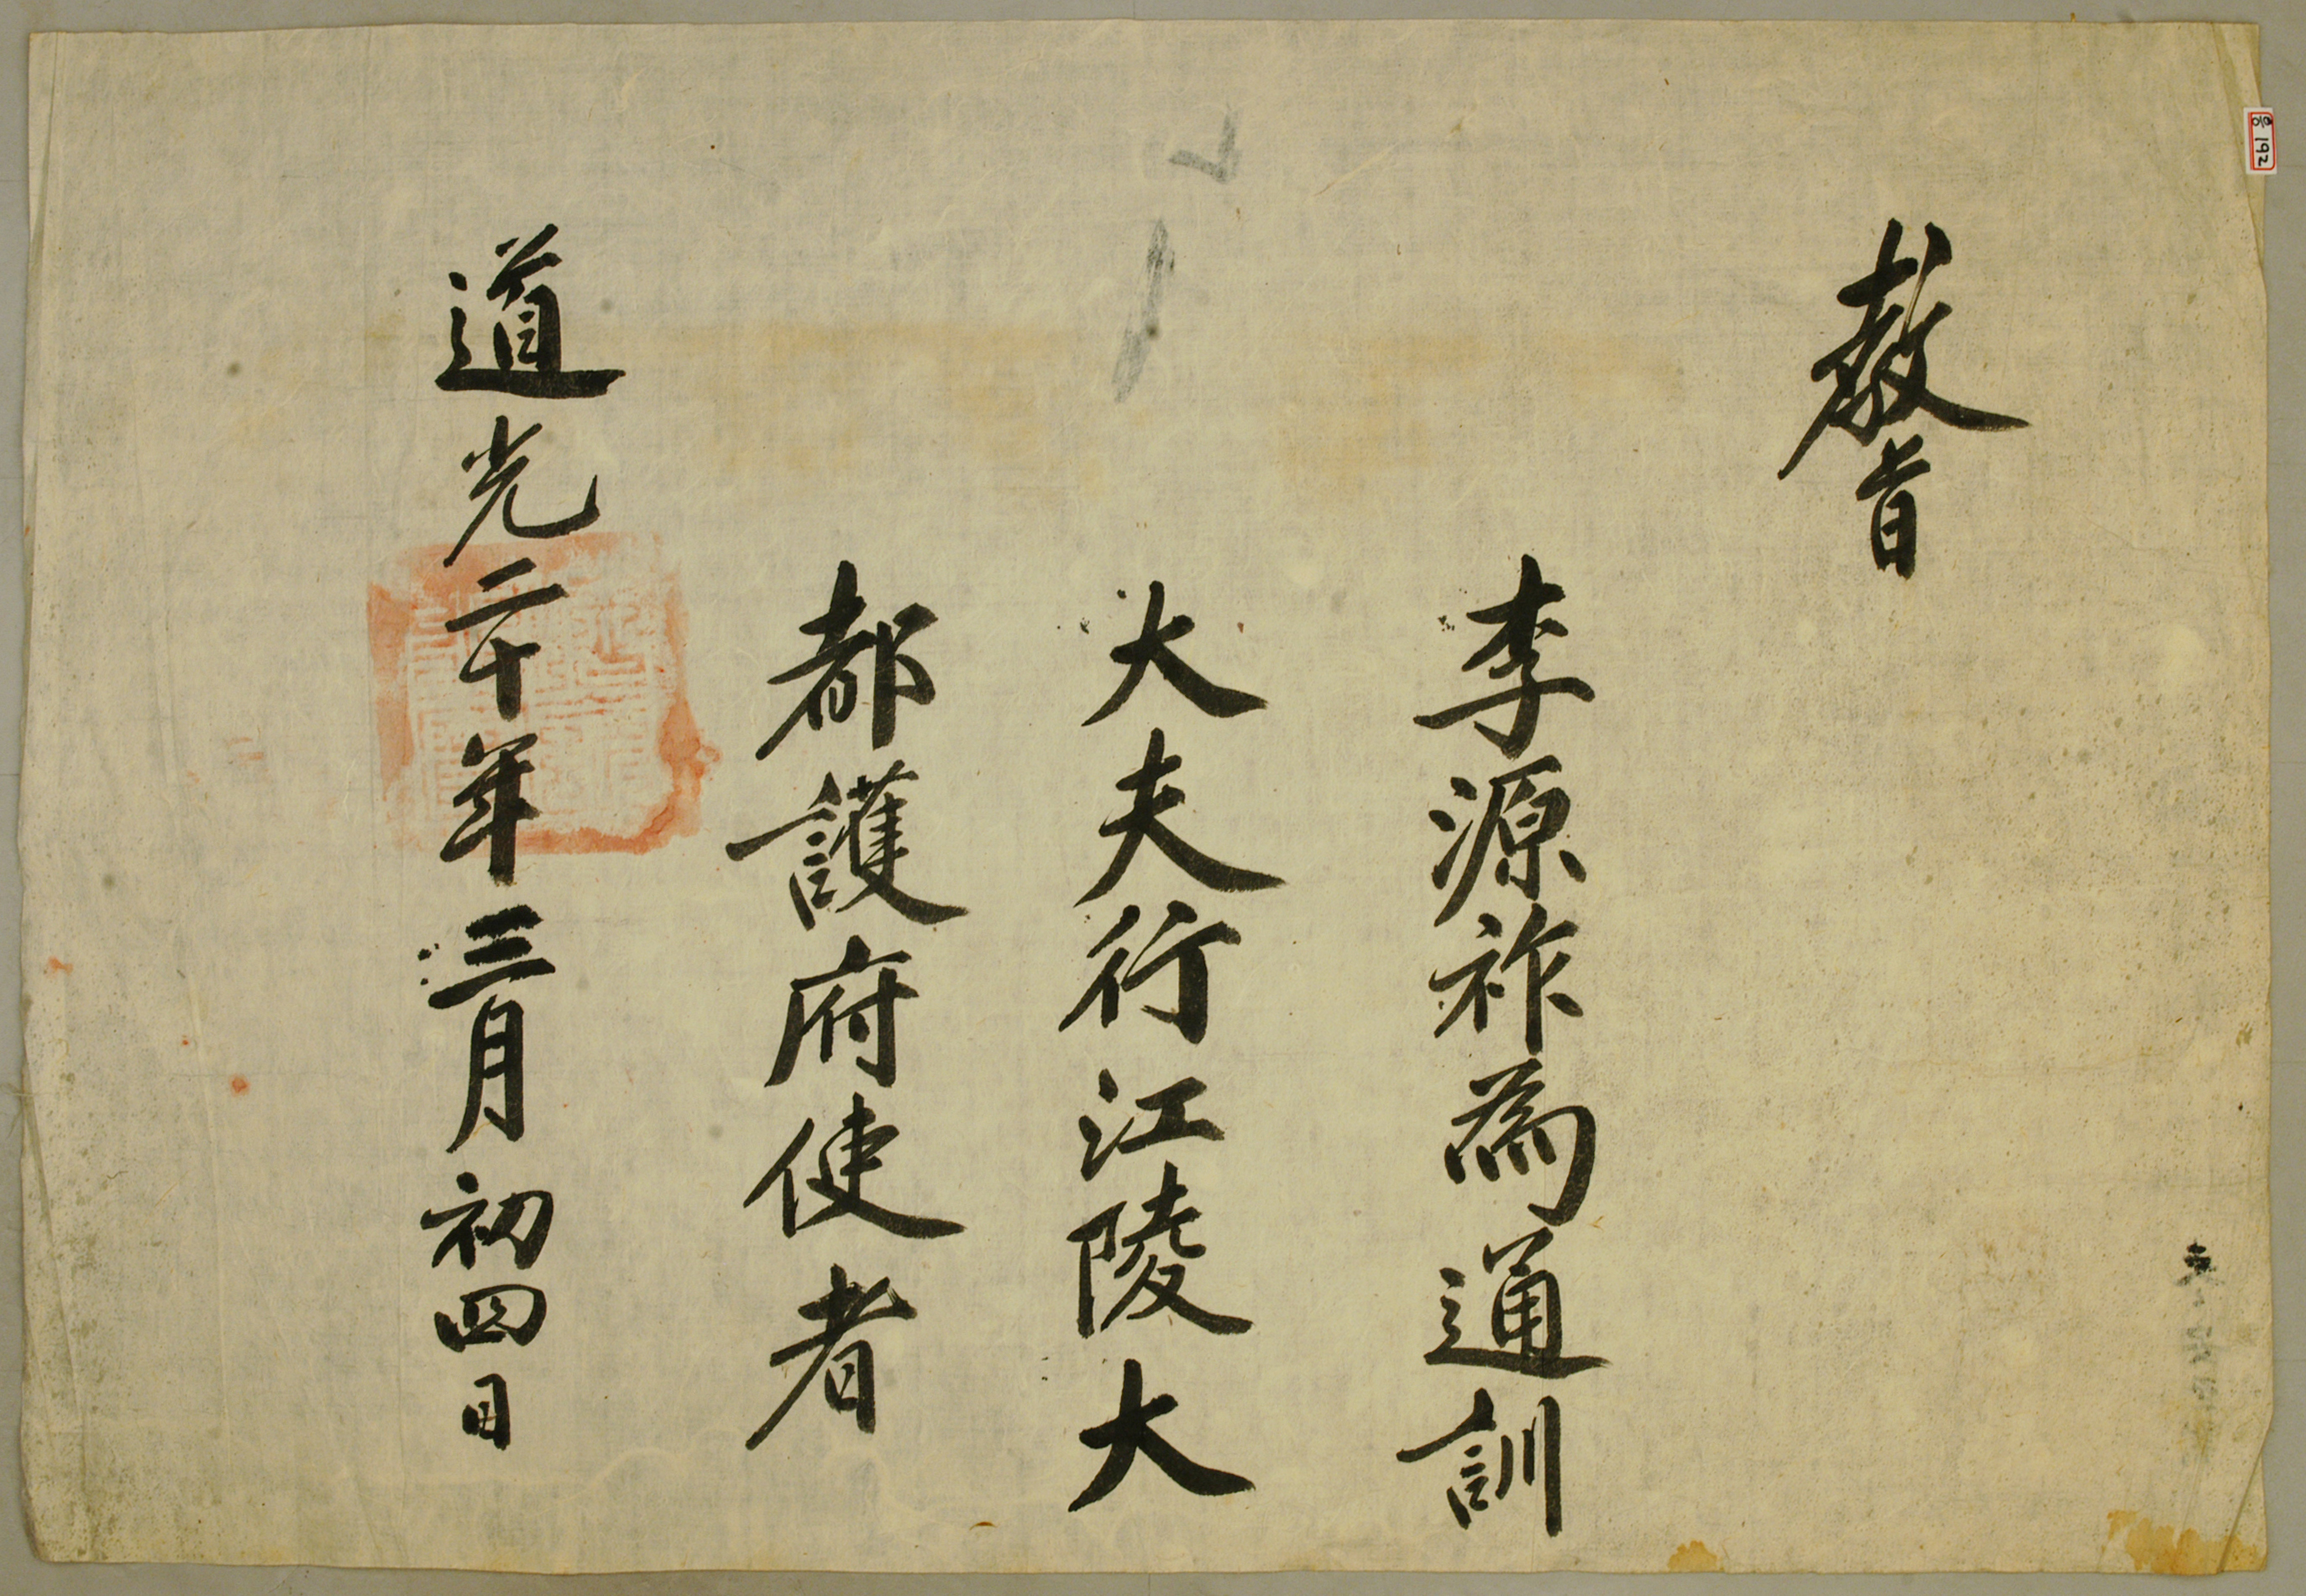 教旨
李源祚為通訓
大夫行江陵大
都護府使者
道光二十年三月初四日
192